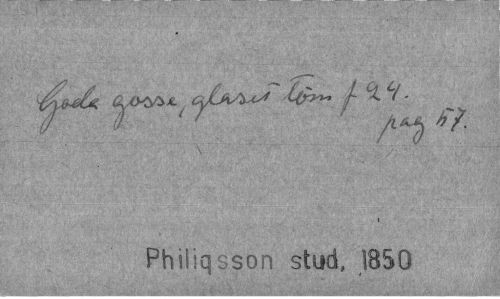 Goda gosse, glaset töm f 24.
pag 57.
Philiqsson stud, 1850